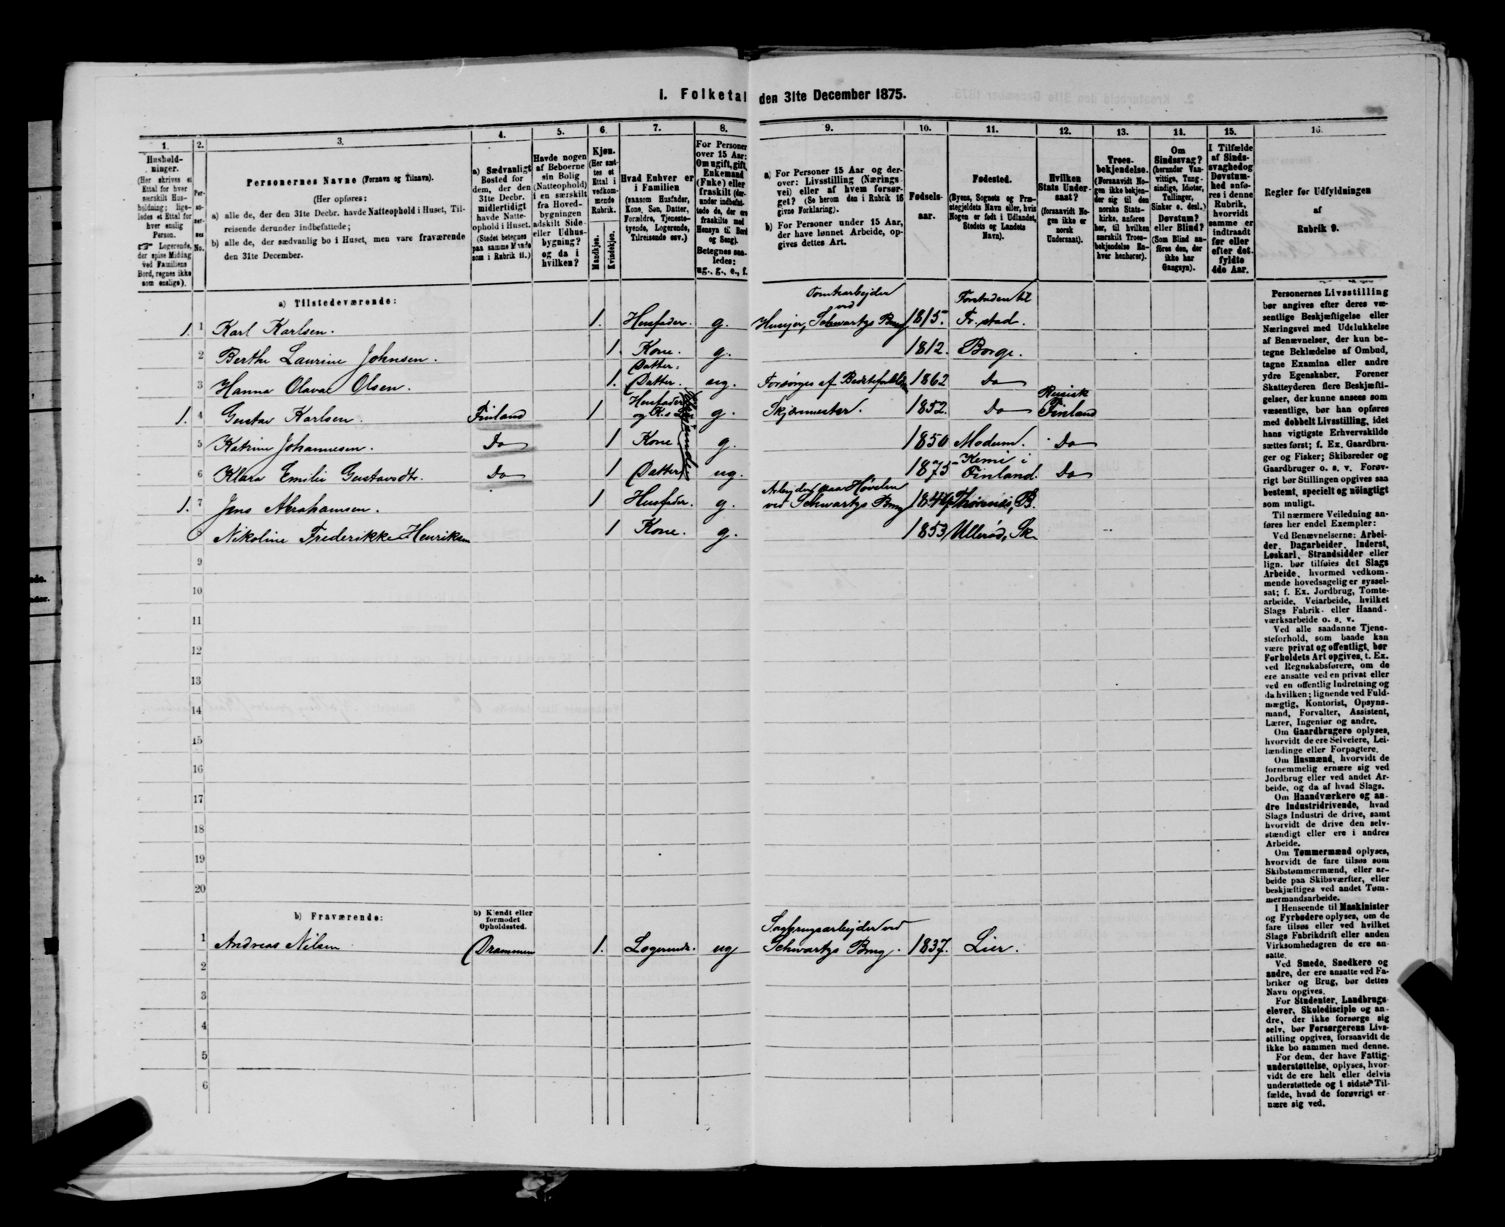 1. Folketal den 31te December 1875.
1. 2. 3. 4. 5. 6. 7. 8. 9. 10. 11. 12. 13. 14. 15. 16.
Hushold-
ninger.
(Her skrives et
Ettal for hver
særskilt Hus-
holdning; lige-
ledes et Ettal for
hver enslig
Person.
Logerende,
der spise Middag
ved Familiens
Bord, regnes ikke
som enslige).
Per-
so-
ner-
nes
No.
Personernes Navne (Fornavn og Tilnavn).
(Her opføres:
a) alle de, der den 31te Decbr. havde Natteophold i Huset, Til-
reisende derunder indbefattede;
b) alle de, der sædvanlig bo i Huset, men vare fraværende
den 31te December.
a) Sædvanligt
Bosted for
dem, der den
31te Decbr.
midlertidigt
havde Natte-
ophold i Huset.
(Stedet betegnes
paa samme Maade
som i Rubrik 11.)
Havde nogen
af Beboerne
sin Bolig
(Natteophold)
i en særskilt
fra Hoved-
bygningen
adskilt Side-
eller Udhus-
bygning?
og da i
hvilken?
Kjøn.
(Her sæt-
tes et
Ettal i
vedkom-
mende
Rubrik.
Mandkjøn.
Kvindekjøn.
Hvad Enhver er
i Familien
(saasom Husfader,
Kone, Søn, Datter,
Forældre, Tjeneste-
tyende, Logerende,
Tilreisende osv.)
For Personer
over 15 Aar:
Om ugift, gift,
Enkemand
(Enke) eller
fraskilt (der-
under indbefat-
tede de, der ere
fraskilte med
Hensyn til Bord
og Seng).
Betegnes saa-
ledes:
ug., g., e., f.
a) For Personer 15 Aar og der-
over: Livsstilling (Nærings-
vei) eller af hvem forsør-
get? (Se herom den i Rubrik 16
givne Forklaring).
b) For Personer under 15 Aar,
der have lønnet Arbeide, op-
gives dettes Art.
Fødsels-
aar.
Fødested.
(Byens, Sognets og Præ-
stegjeldets Navn eller, hvis
Nogen er født i Udlandet,
Stedets og Landets
Navn).
Hvilken
Stats Under-
saat?
(forsaavidt No-
gen ikke er
norsk
Undersaat).
Troes-
bekjendelse.
(Forsaavidt No-
gen ikke bekjen-
der sig til den
norske Stats-
kirke, anføres
her, til hvilken
særskilt Troes-
bekjendelse En-
hver henhører).
Om
Sindssvag?
(herunder Van-
vittige, Tung-
sindige, Idioter,
Tullinger,
Sinker o. desl.)
Døvstum?
eller Blind?
(Som Blind an-
føres den, der
ikke har
Gangsyn).
I Tilfælde
af Sinds-
svaghed og
Døvstum-
hed anfø-
res i denne
Rubrik,
hvorvidt
samme er
indtraadt
før eller
efter det
fyldte
4de Aar.
Regler for Udfyldningen
af
Rubrik 9.
a) Tilstedeværende:
1. 1 Karl Karlsen. 1. Husfader. g. Tomtearbejder ved Schwartys Brug 1815. Fr.stad.
2 Berthe Laurine Johnsen. 1. Kone. g. 1812. Borge.
3 Hanna Olava Olsen. 1. Datter. Datter. ug. Forsørges af 1862 Do
1. 4 Gustav Karlsen. Finland 1 Husfader g. 1852. Do Russisk Finland
5 Katrine Johannesen. Do 1 Kone g. 1850 Modum. Do
6 Klara Emilie Gustavsdtr. Do 1 Datter ug. 1875 Kemi i Finland. Do
1. 7 Jens Abrahamsen. 1 Husfader. g. Arbejder paa Høvelen ved Schwartys Brug
8 Nikoline Frederikke Henriksen 1 Kone. g. 1853 Ullerød, Sk
9
10
11
12
13
14
15
16
17
18
19
20
b) Fraværende:
b) Kjendt eller
formodet
Opholdssted.
1 Andreas Nilsen Drammen 1. Logerende. ug Sagbrugsarbejder ved Schwartys Brug. 1837. Lier.
2
3
4
5
6
Personernes Livsstilling
bør angives efter deres væ-
sentlige Beskjæftigelse eller
Næringsvei med Udelukkelse
af Benævnelser, der kun be-
tegne Beklædelse af Ombud,
tagne Examina eller andre
ydre Egenskaber. Forener
Skatteyderen flere Beskjæfti-
gelser, der kunne ansees som
væsentlige, bør han opføres
med dobbelt Livsstilling, idet
hans vigtigste Erhvervskilde
sættes først; f. Ex. Gaardbru-
ger og Fisker; Skibsreder og
Gaardbruger o. s. v. Forøv-
rigt bør Stillingen opgives saa
bestemt, specielt og nøiagtigt
som muligt.
Til nærmere Veiledning an-
føres her endel Exempler:
Ved Benævnelserne: Arbei-
der, Dagarbeider, Inderst,
Løskarl, Strandsidder eller
lign. bør tilføies det Slags
Arbeide, hvormed vedkom-
mende hovedsagelig er syssel-
sat; f. Ex. Jordbrug, Tomte-
arbeide, Veiarbeide, hvilket
Slags Fabrik- eller Haand-
værksarbeide o. s. v.
Ved alle saadanne Tjene-
steforhold, som baade kan
være privat og offentligt, bør
Forholdets Art opgives, t. Ex.
ved Regnskabsførere, om de
ere ansatte ved en privat eller
ved en offentlig Indretning og
da hvilken; lignende ved Fuld-
mægtig, Kontorist, Opsyns-
mand, Forvalter, Assistent,
Lærer, Ingeniør og andre.
Om Gaardbrugere oplyses,
hvorvidt de ere Selveiere, Lei-
lændinge eller Forpagtere.
Om Husmænd, hvorvidt de
fornemmelig ernære sig ved
Jordbrug eller ved andet Ar-
beide, og da af hvad Slags.
Om Haandværkere og an-
dre Industridrivende, hvad
Slags Industri de drive, samt
hvorvidt de drive den selv-
stændigt eller ere i andres
Arbeide.
Om Tømmermænd oplyses,
hvorvidt de fare tilsøs som
Skibstømmermænd, eller ar-
beide paa Skibsværfter, eller
beskjæftiges ved andet Tøm-
mermandsarbeide.
I Henseende til Maskinister
og Fyrbødere oplyses, om de
fare tilsøs eller ved hvilket
Slags Fabrikdrift eller anden
Virksomhedsgren de ere an-
satte.
Ved Smede, Snedkere og
andre, der ere ansatte ved Fa-
briker og Brug, bør dettes
Navn opgives.
For Studenter, Landbrugs-
elever, Skoledisciple og an-
dre, der ikke forsørge sig
selv, bør Forsørgerens Livs-
stilling opgives, forsaavidt de
ikke bo sammen med denne.
For dem, der have Fattig-
understøttelse, oplyses, hvor-
vidt de ere helt eller delvis
understøttede og i sidste Til-
fælde, hvad de forøvrigt er-
nære sig ved.